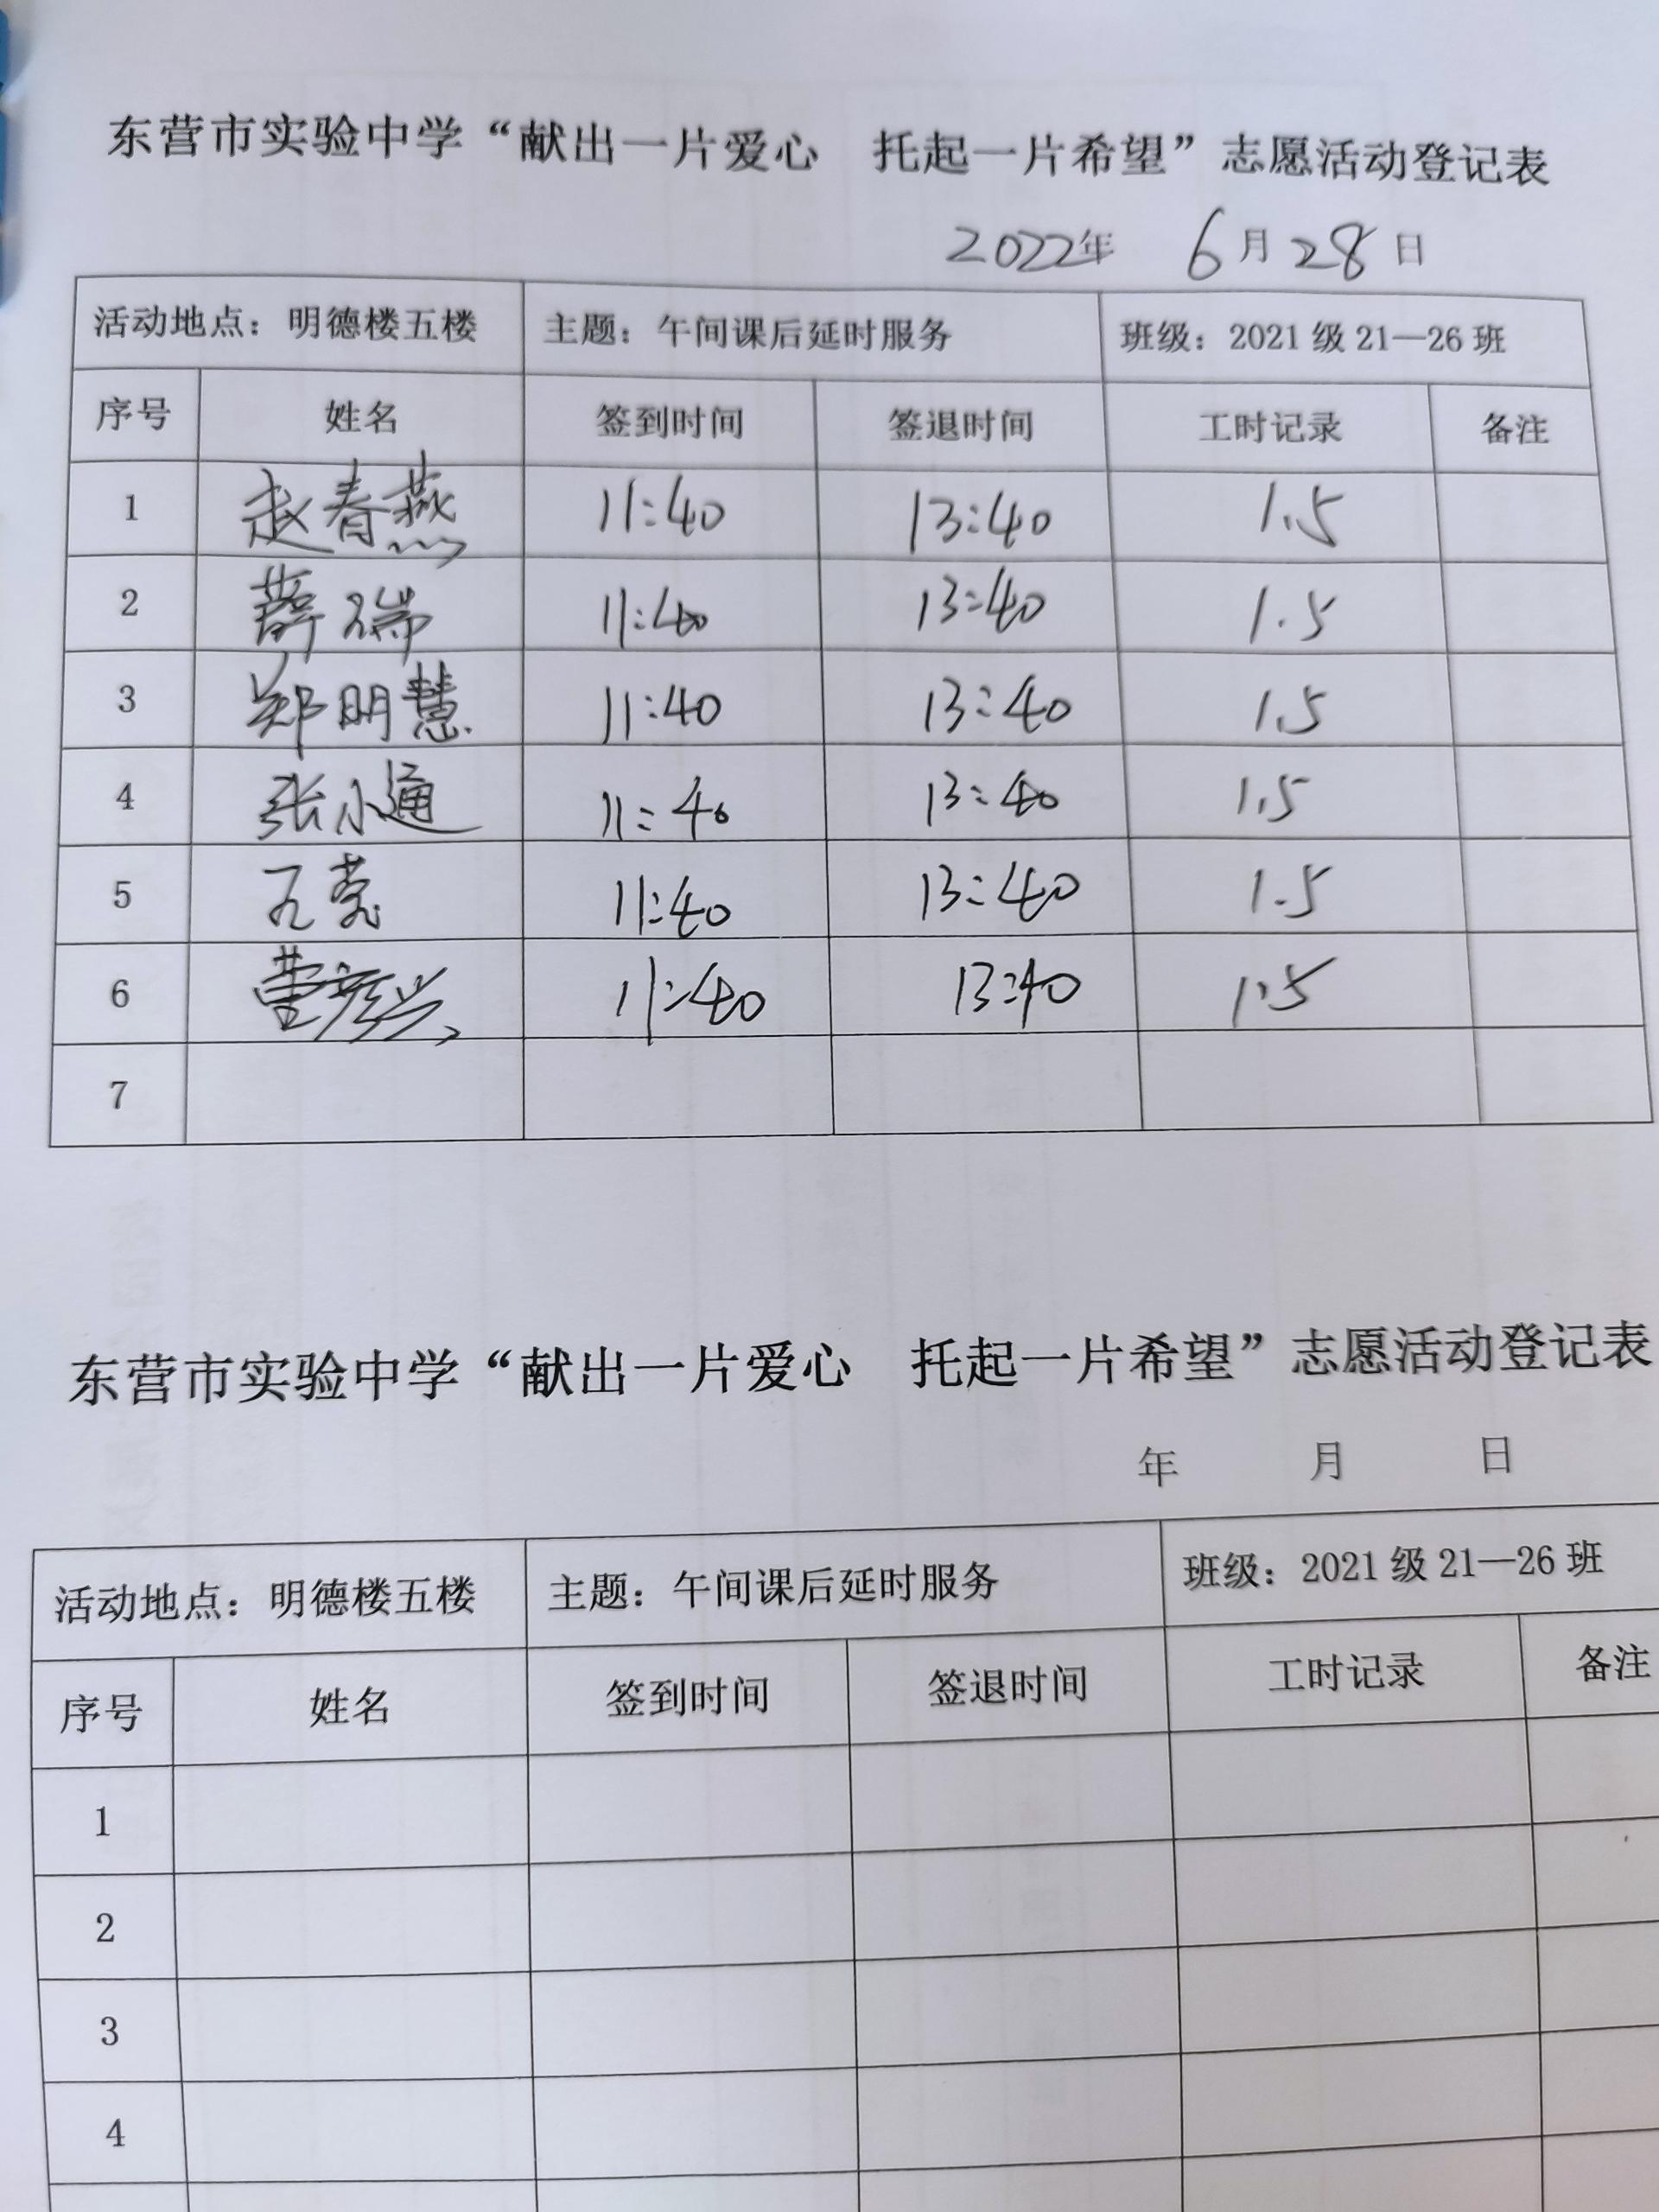 东营市实验中学“献出一片爱心 托起一片希望”志愿活动登记表
2022年 6月28日
活动地点：明德楼五楼 主题：午间课后延时服务 班级：2021级21—26班
序号 姓名 签到时间 签退时间 工时记录 备注
1 赵春燕 11:40 13:40 1.5
2 薛瑞 11:40 13:40 1.5
3 郑明慧 11:40 13:40 1.5
4 张小通 11:40 13:40 1.5
5 11:40 13:40 1.5
6 11:40 13:40 1.5
7
东营市实验中学“献出一片爱心 托起一片希望”志愿活动登记表
年 月 日
活动地点：明德楼五楼 主题：午间课后延时服务 班级：2021级21—26班
序号 姓名 签到时间 签退时间 工时记录 备注
1
2
3
4